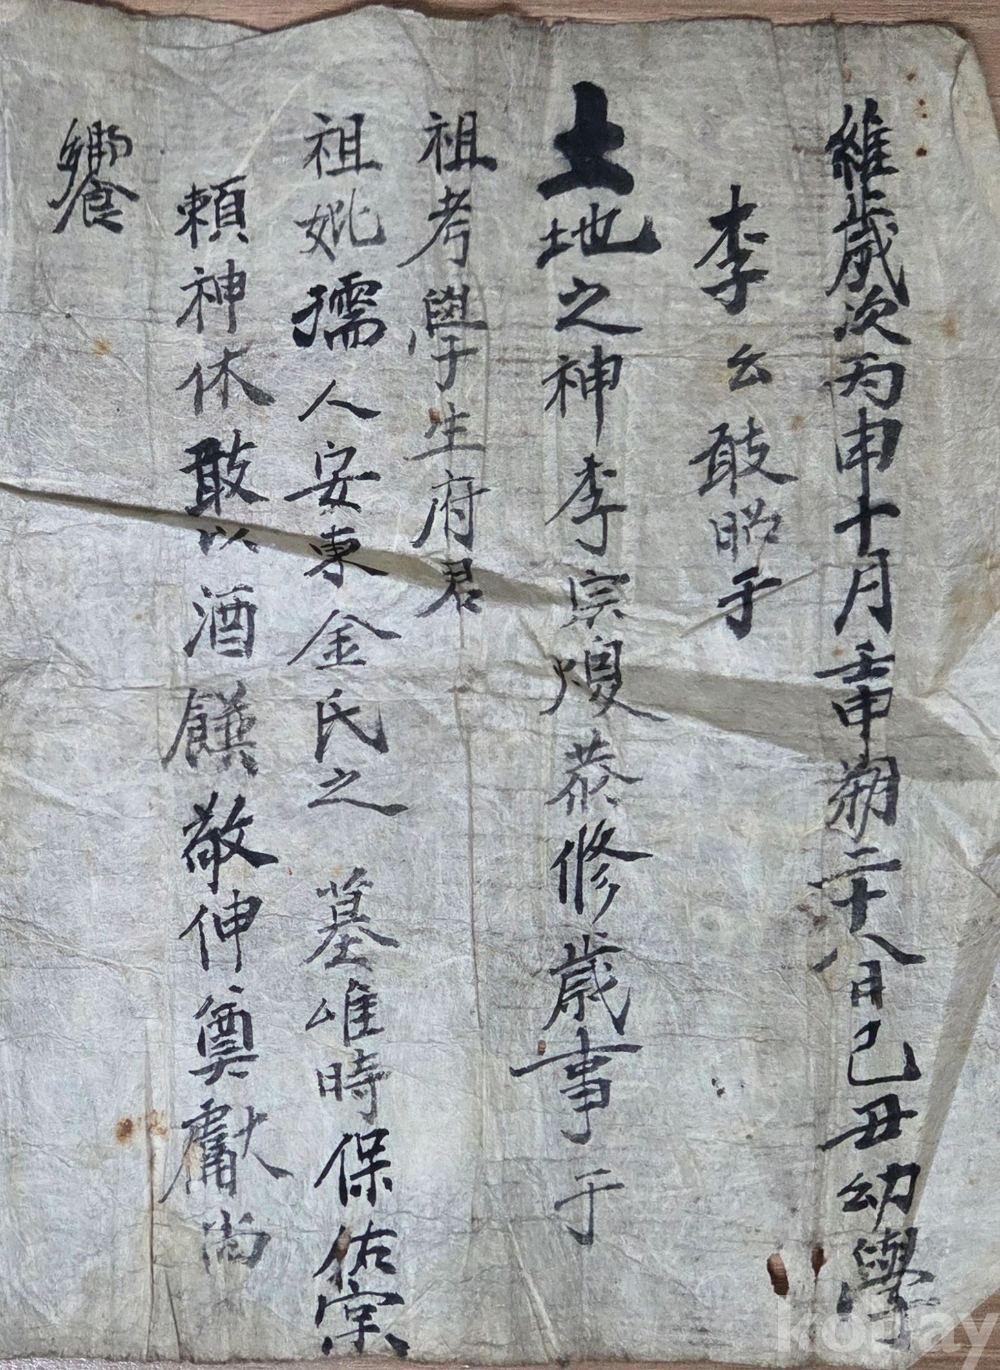 維歲次丙申十月壬申朔二十八日己丑幼學
李 厶 敢昭于
土地之神李宗 恭修歲事于
祖考學生府君
祖妣孺人安東金氏之 墓唯時保佑宗
賴神休敢以酒饌敬伸奠獻尚
饗
kobay